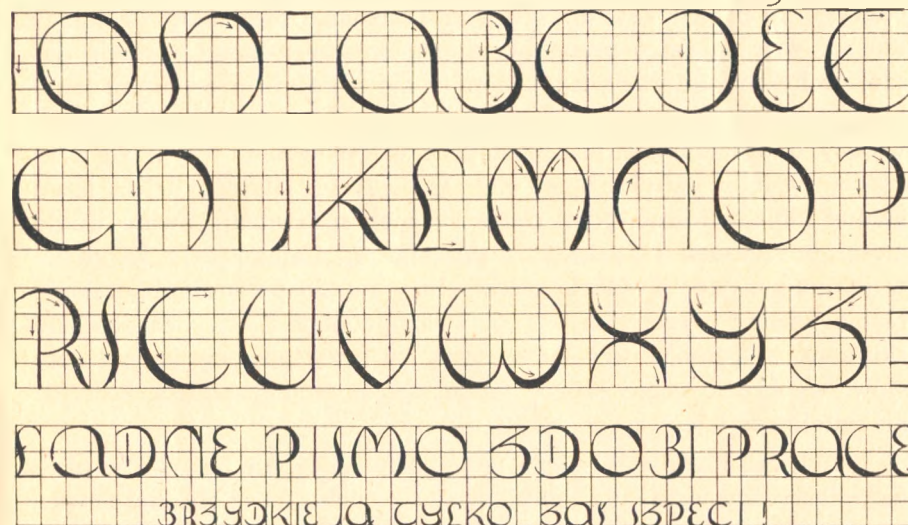 A B C D E E
G H I J K L M N O P
R S T U V W X Y Z
ŁADNE PISMO ZDOBI PRACE
BRZYDKIE JA TYLKO ZAS SZPECI !